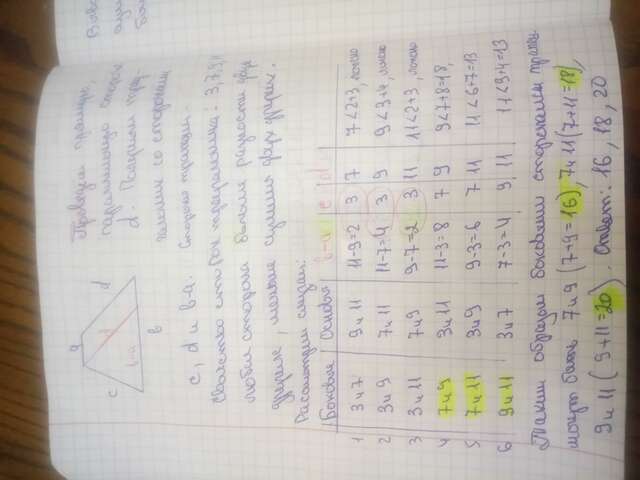 a
c
d
d
b-a
b
Проведем прямую,
параллельную стороне
d. Получим треу-
гольник со сторонами
c, d и b-a. Стороны трапеции:
Свойство сторон треугольника: 3,7,9,11
любая сторона больше разности двух
других, меньше суммы двух других.
Рассмотрим случаи:
Боковые Основая b-a c d
1 3 и 7 9 и 11 11-9=2 3 7 7<2+3, ложно
2 3 и 9 7 и 11 11-7=4 3 9 9<3+4, ложно
3 3 и 11 7 и 9 9-7=2 3 11 11<2+3, ложно
4 7 и 9 3 и 11 11-3=8 7 9 9<7+8=18,
5 7 и 11 3 и 9 9-3=6 7 11 11<6+7=13
6 9 и 11 3 и 7 7-3=4 9, 11 11<9+4=13
Таким образом боковыми сторонами трапец
могут быть 7 и 9 (7+9=16), 7 и 11 (7+11=18),
9 и 11 (9+11=20). Ответ: 16, 18, 20